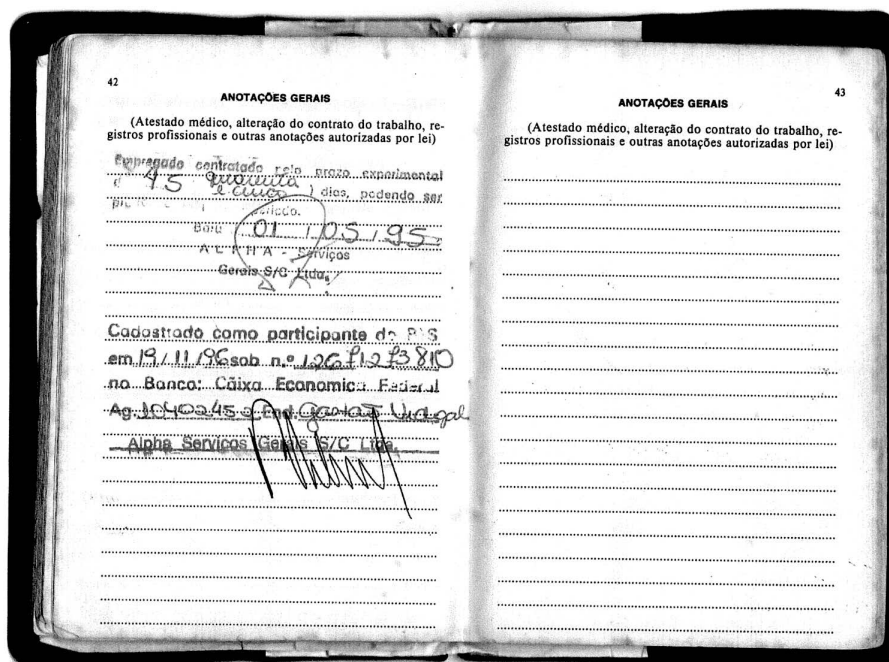 42
ANOTAÇÕES GERAIS
(Atestado médico, alteração do contrato do trabalho, re-
gistros profissionais e outras anotações autorizadas por lei)
Empregado contratado pelo prazo experimental
d 45 quarenta
e cinco ) dias, podendo ser
período.
Data 01 / 05 / 95
ALPHA - Serviços
Gerais S/C Ltda.
Cadastrado como participante do PIS
em 19 / 11 / 96 sob n.º
no Banco: Caixa Economica Federal
Ag. End.
Alpha Serviços Gerais S/C Ltda.
43
ANOTAÇÕES GERAIS
(Atestado médico, alteração do contrato do trabalho, re-
gistros profissionais e outras anotações autorizadas por lei)